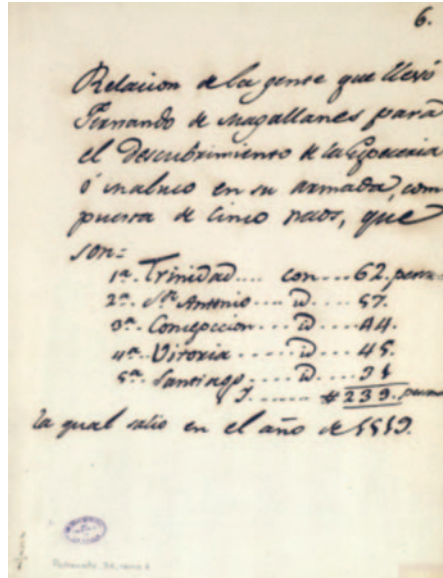 6.
Relacion de la gente que llevó
Fernando de Magallanes para
el Descubrimiento de la Especeria
ó maluco en su armada, com
puesta de Cinco naos, que
son=
1ª. Trinidad.... con... 62. pers
2ª. Sn. Antonio.... id.... 57.
3ª. Concepcion... id.... 44.
4ª. Vitoria..... id.... 45.
5ª. Santiago..... id.... 31
#239. pers
la qual salio en el año de 1519.
Patronato. 34, ramo 6